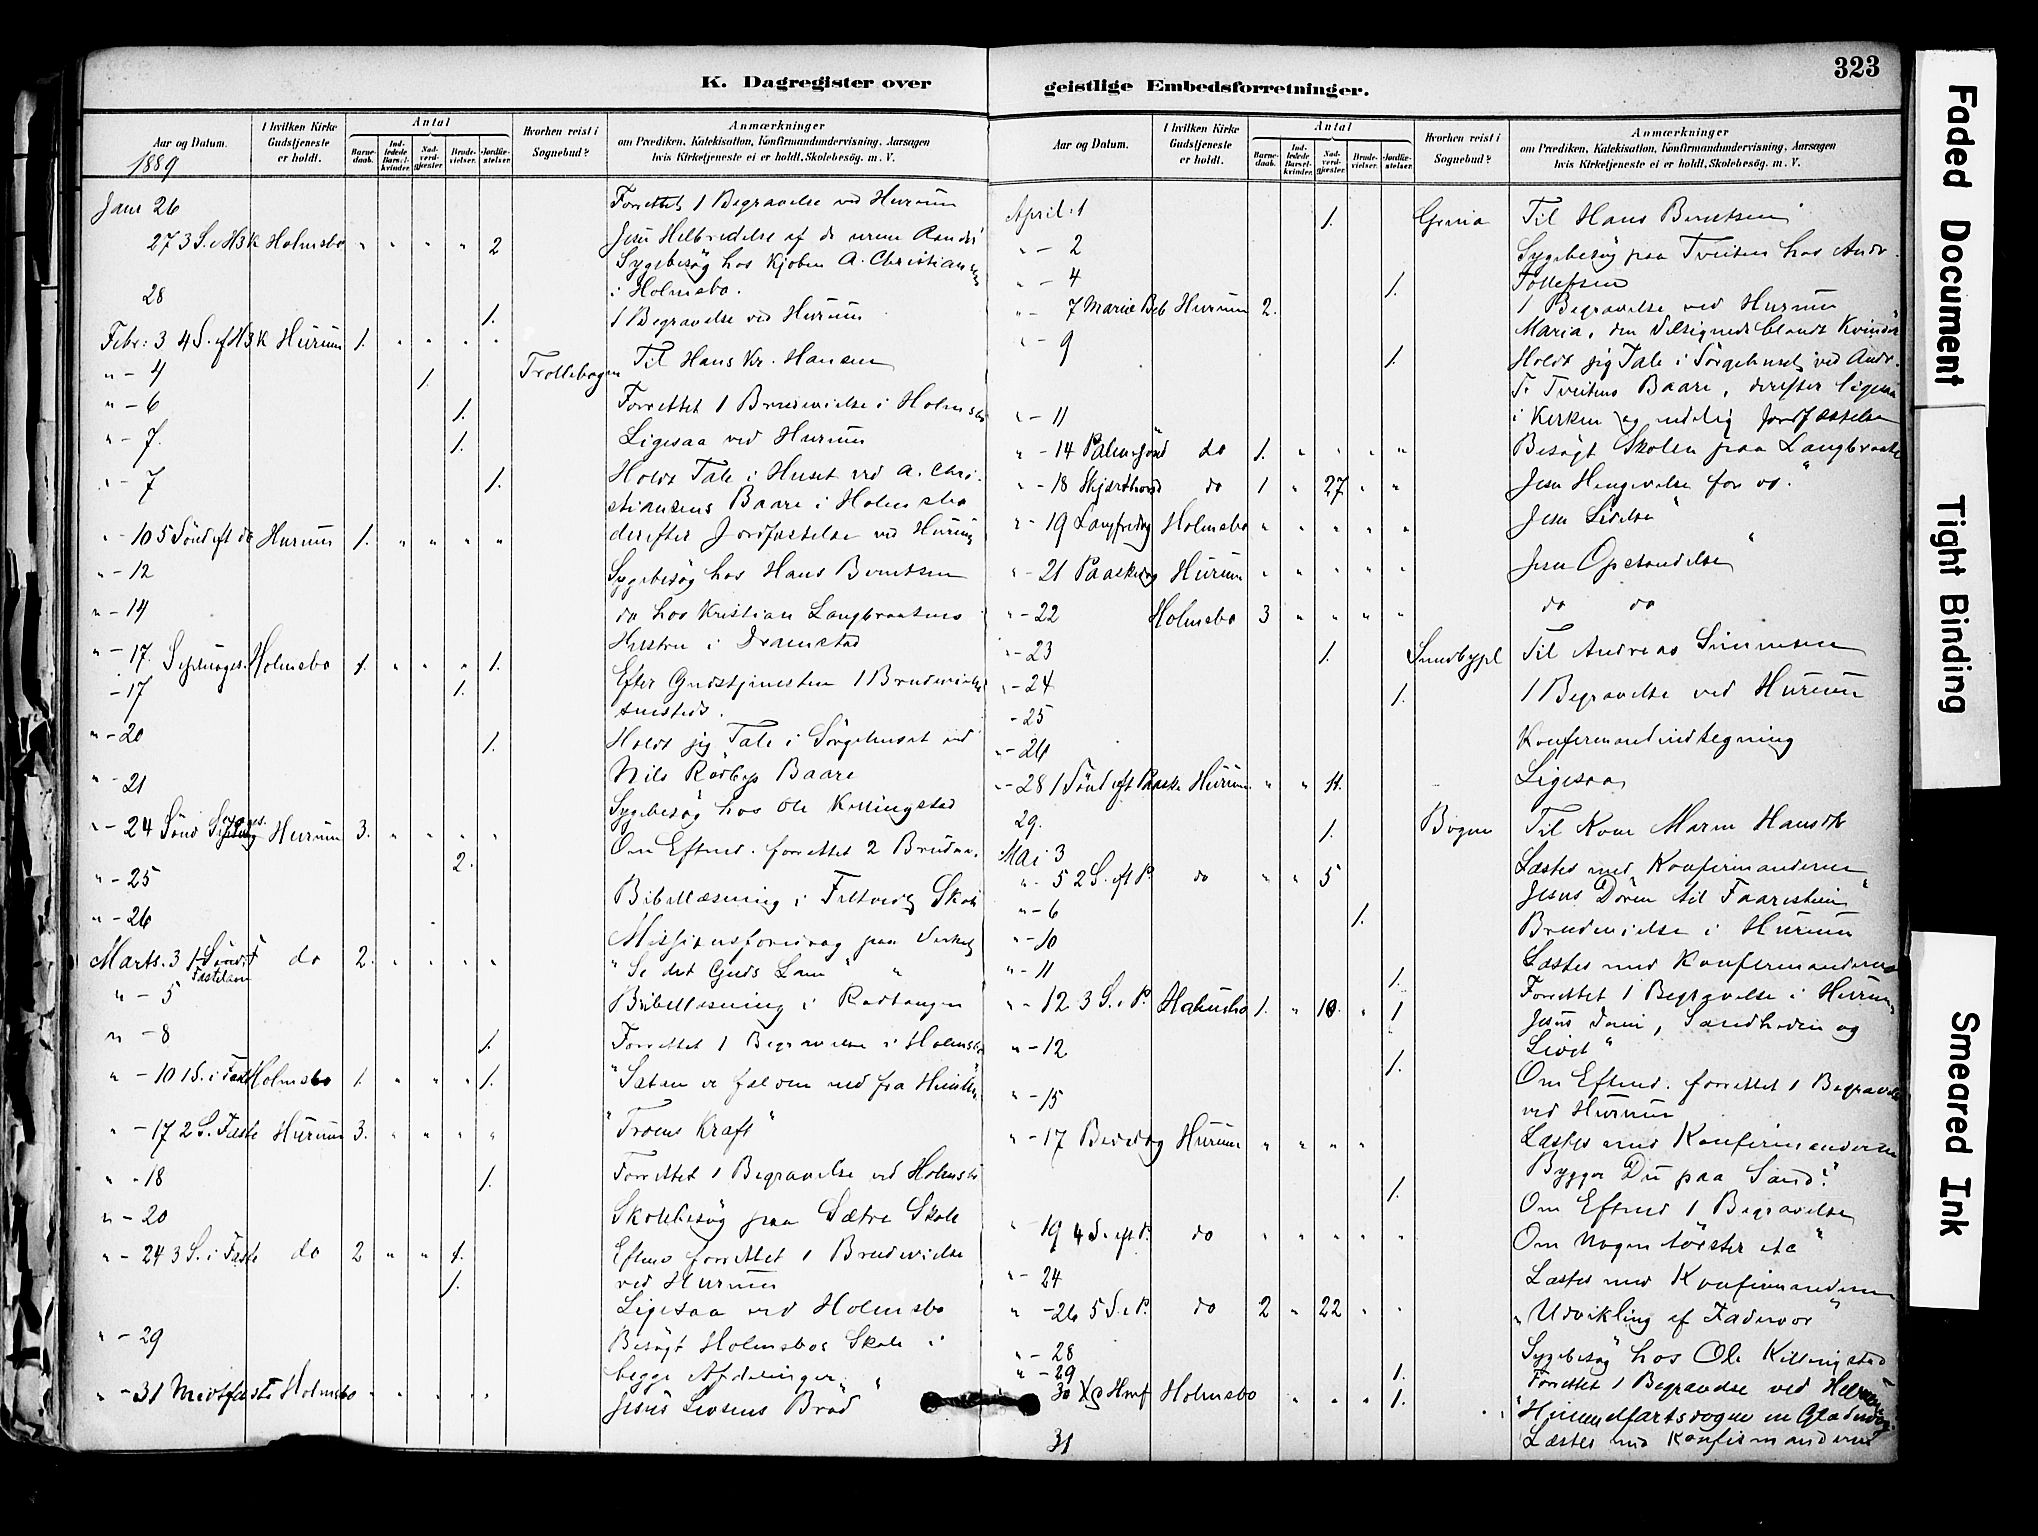 323
K. Dagregister over
geistlige Embedsforretninger.
Aar og Datum.
I hvilken Kirke Gudstjeneste er holdt.
Antal
Barnedaab.
Indledede Barselkvinder.
Nadverdgjester.
Brudevielser.
Jordfæstelser.
Hvorhen reist i Sognebud?
Anmærkninger
om Prædiken, Katekisation, Konfirmandundervisning, Aarsagen
hvis Kirketjeneste ei er holdt, Skolebesøg. m. V.
1889
Janr 26 Forrettet 1 Begravelse ved Hurum
27 3 S. e H3K Holmsbo " " " " 2 Jesu Helbredelse af de urene Aander
Sygebesøg hos Kjøbm A. Christiansens
i Holmsbo.
28 1. 1 Begravelse ved Hurum
Febr: 3 4 S. ef H3K Hurum 1. " " " "
" - 4 1. Trollebogen Til Hans Kr. Hansen
" - 6 1. Forrettet 1 Brudevielse i Holmsbo
" - 7. 1. Ligesaa ved Hurum
" - 7 1. Holdt Tale i Huset ved A. Christiansens Baare i Holmsbo
derefter Jordfæstelse ved Hurum
" - 10 5 Sønd eft do Hurum 1. " " " "
" - 12 Sygebesøg hos Hans Berntsen
" - 14 do hos Kristian Langbraatens
Hustru i Dramstad
" - 17. Septuages. Holmsbo 1. " " " 1.
- 17 1. Efter Gudstjenesten 1 Brudevielse
sammesteds.
" - 20 1. Holdt jeg Tale i Sørgehuset ved
Nils Rødbys Baare
" - 21 Sygebesøg hos Ole Killingstad
" - 24 Sønd Sexages. Hurum 3. " " " "
2. Om Eftmd. forrettet 2 Brudev.
" - 25 Bibellæsning i Filtvedt Skole
" - 26 Missionsforedrag paa
Marts. 3 1 Sønd i Fastelavn do 2. " " " " "Se det Guds Lam"
" - 5 Bibellæsning i Rødtangen
" - 8 1. Forrettet 1 Begravelse i Holmsbo
" - 10 1 S. i Faste Holmsbo 1. " " " 1. "Satan er falden ned fra Himlen"
" - 17 2 S. Faste Hurum 3. " " " " "Troens Kraft"
" - 18 1. Forrettet 1 Begravelse ved Holmsbo
" - 20 Skolebesøg paa Sætre Skole
" - 24 3 S. i Faste do 2 " " 1. Eftmd forrettet 1 Brudevielse
ved Hurum
1. Ligesaa ved Holmsbo
" - 29 Besøgt Holmsbos Skole i
begge Afdelinger
" - 31 Midtfaste Holmsbo " " " " Jesus Livsens Brød
Aar og Datum.
I hvilken Kirke Gudstjeneste er holdt.
Antal
Barnedaab.
Indledede Barselkvinder.
Nadverdgjester.
Brudevielser.
Jordfæstelser.
Hvorhen reist i Sognebud?
Anmærkninger
om Prædiken, Katekisation, Konfirmandundervisning, Aarsagen
hvis Kirketjeneste ei er holdt, Skolebesøg. m. V.
April. 1 1. Til Hans Berntsen
" - 2 Sygebesøg paa Tveiten hos Andr.
Tollefsen
" - 4 1. 1 Begravelse ved Hurum
" - 7 Mariæ Beb Hurum 2. Maria, den Velsignede blandt Kvinder
" - 9 1. Holdt jeg Tale i Sørgehuset ved Andr.
T. Tveitens Baare, derefter ligesaa
i Kirken og endelig Jordfæstelse
" - 11 Besøgt Skolen paa Langbraate
" - 14 Palmesønd do 1. " " " "
" - 18 Skjærthorsd do 1 " 27 " " Jesu Hengivelse for os."
" - 19 Langfredag Holmsbo " " " " " Jesu Lidelse"
" - 21 Paaskedag Hurum " " " " " Jesu Opstandelse"
" - 22 Holmsbo 3 " " " " do do
" - 23 1. Sundbypl Til Andreas Simensen
" - 24 1. 1 Begravelse ved Hurum
- 25 Konfirmandindtegning
" - 26 Ligesaa
" - 28 1 Sønd eft Paaske Hurum " " 11.
29. 1. Bogen Til Kone Maren Hansdtr
Mai 3 Læstes med Konfirmanderne
" - 5 2 S. eft P. do " " 5 Jesus Døren til Faarestien"
" - 6 1. Brudevielse i Hurum
" - 10 Læstes med Konfirmanderne
" - 11 1. Forrettet 1 Begravelse i Hurum
" - 12 3 S. e P. Holmsbo 1. " 10. " 1 Jesus Veien, Sandheden og
Livet"
" - 12 1. Om Eftmd. forrettet 1 Begravelse
ved Hurum
" - 15 Læstes med Konfirmanderne
" - 17 Bededag Hurum " " " " Bygger Du paa Sand?"
1. Om Eftmd 1 Begravelse
" - 19 4 S. eft P. do " " " " " Om Nogen tørster etc"
" - 24 Læstes med Konfirmanderne
" - 26 5 S. e P. do 2 " 22 " " "Udvikling af Fadervor"
" - 28 Sygebesøg hos Ole Killingstad
" - 29 1. Forrettet 1 Begravelse ved Hurum
30 Kr Hmf Holmsbo " " " 1. "Himmelfartsdagen en Glædesdag"
31 Læstes med Konfirmanderne
Faded Document
Tight Binding
Smeared Ink